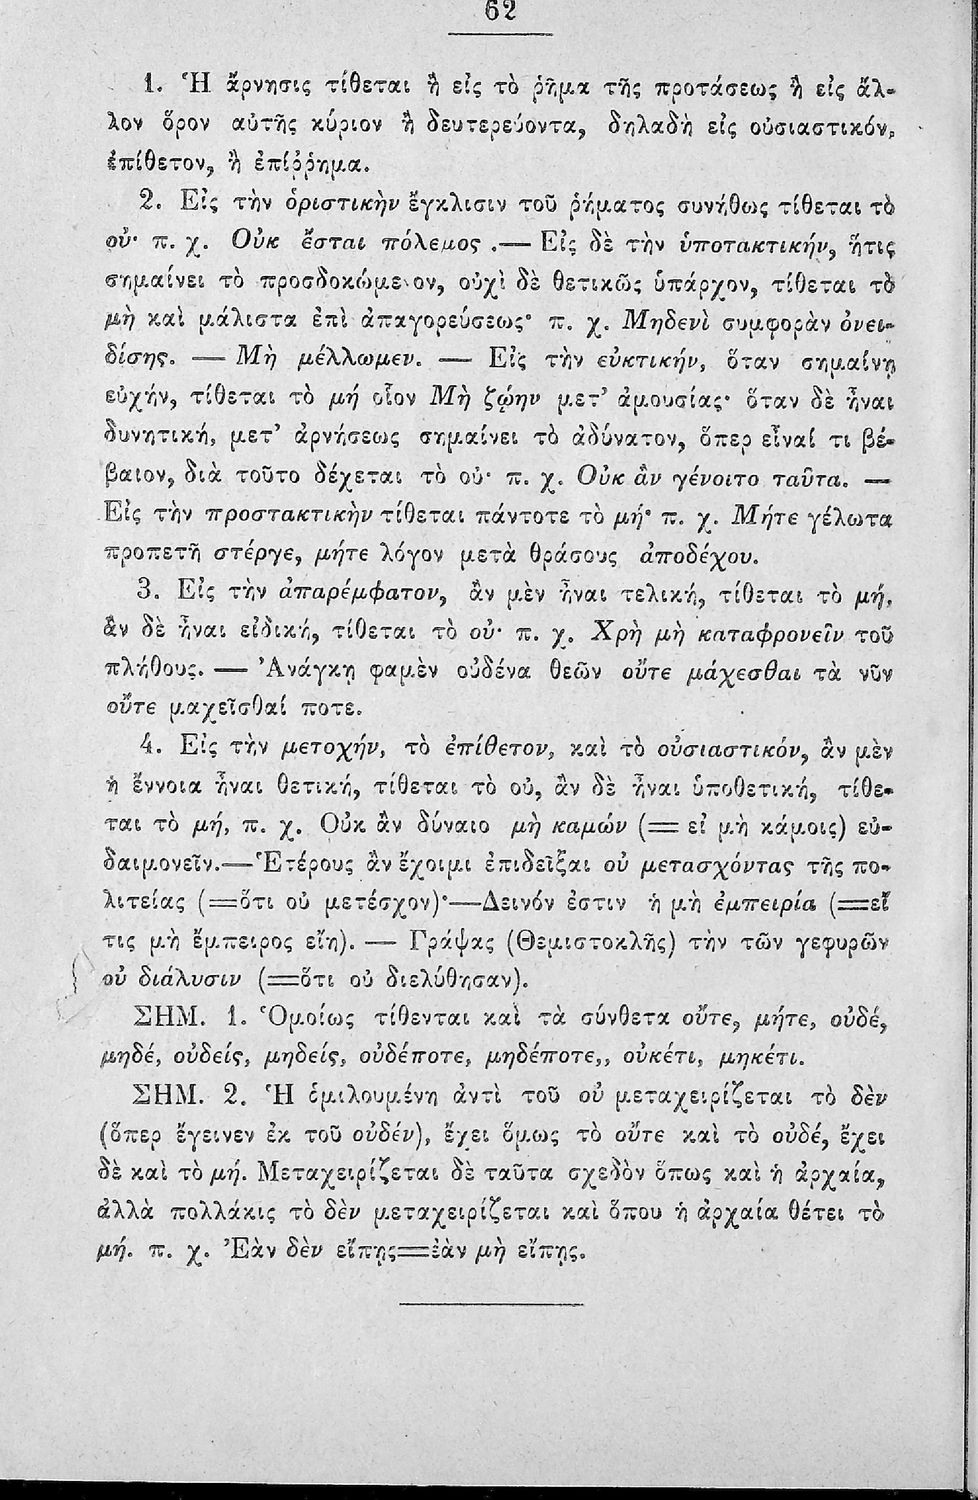 62
1. Ἡ ἄρνησις τίθεται ἢ εἰς τὸ ῥῆμα τῆς προτάσεως ἢ εἰς ἄλ-
λον ὅρον αὐτῆς κύριον ἢ δευτερεύοντα, δηλαδὴ εἰς οὐσιαστικόν,
ἐπίθετον, ἢ ἐπίῤῥημα.
2. Εἰς τὴν ὁριστικὴν ἔγκλισιν τοῦ ῥήματος συνήθως τίθεται τὸ
οὐ· π. χ. Οὐκ ἔσται πόλεμος .— Εἰς δὲ τὴν ὑποτακτικήν, ἥτις
σημαίνει τὸ προσδοκώμενον, οὐχὶ δὲ θετικῶς ὑπάρχον, τίθεται τὸ
μὴ καὶ μάλιστα ἐπὶ ἀπαγορεύσεως· π. χ. Μηδενὶ συμφορὰν ὀνει-
δίσῃς. — Μὴ μέλλωμεν. — Εἰς τὴν εὐκτικήν, ὅταν σημαίνῃ
εὐχήν, τίθεται τὸ μή οἷον Μὴ ζῴην μετ’ ἀμουσίας· ὅταν δὲ ἦναι
δυνητική, μετ’ ἀρνήσεως σημαίνει τὸ ἀδύνατον, ὅπερ εἶναί τι βέ-
βαιον, διὰ τοῦτο δέχεται τὸ οὐ· π. χ. Οὐκ ἂν γένοιτο ταῦτα. —
Εἰς τὴν προστακτικὴν τίθεται πάντοτε τὸ μή· π. χ. Μήτε γέλωτα
προπετῆ στέργε, μήτε λόγον μετὰ θράσους ἀποδέχου.
3. Εἰς τὴν ἀπαρέμφατον, ἂν μὲν ἦναι τελική, τίθεται τὸ μή,
ἂν δὲ ἦναι εἰδική, τίθεται τὸ οὐ· π. χ. Χρὴ μὴ καταφρονεῖν τοῦ
πλήθους. — Ἀνάγκη φαμὲν οὐδένα θεῶν οὔτε μάχεσθαι τὰ νῦν
οὔτε μαχεῖσθαί ποτε.
4. Εἰς τὴν μετοχήν, τὸ ἐπίθετον, καὶ τὸ οὐσιαστικόν, ἂν μὲν
ἡ ἔννοια ἦναι θετική, τίθεται τὸ οὐ, ἂν δὲ ἦναι ὑποθετική, τίθε-
ται τὸ μή, π. χ. Οὐκ ἂν δύναιο μὴ καμών (= εἰ μὴ κάμοις) εὐ-
δαιμονεῖν.—Ἑτέρους ἂν ἔχοιμι ἐπιδεῖξαι οὐ μετασχόντας τῆς πο-
λιτείας (=ὅτι οὐ μετέσχον)·—Δεινόν ἐστιν ἡ μὴ ἐμπειρία (=εἴ
τις μὴ ἔμπειρος εἴη). — Γράψας (Θεμιστοκλῆς) τὴν τῶν γεφυρῶν
οὐ διάλυσιν (=ὅτι οὐ διελύθησαν).
ΣΗΜ. 1. Ὁμοίως τίθενται καὶ τὰ σύνθετα οὔτε, μήτε, οὐδέ,
μηδέ, οὐδείς, μηδείς, οὐδέποτε, μηδέποτε,, οὐκέτι, μηκέτι.
ΣΗΜ. 2. Ἡ ὁμιλουμένη ἀντὶ τοῦ οὐ μεταχειρίζεται τὸ δὲν
(ὅπερ ἔγεινεν ἐκ τοῦ οὐδέν), ἔχει ὅμως τὸ οὔτε καὶ τὸ οὐδέ, ἔχει
δὲ καὶ τὸ μή. Μεταχειρίζεται δὲ ταῦτα σχεδὸν ὅπως καὶ ἡ ἀρχαία,
ἀλλὰ πολλάκις τὸ δὲν μεταχειρίζεται καὶ ὅπου ἡ ἀρχαία θέτει τὸ
μή. π. χ. Ἐὰν δὲν εἴπῃς=ἐὰν μὴ εἴπῃς.